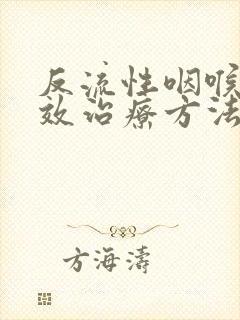 反流性咽喉
效治疗方法
方海濤